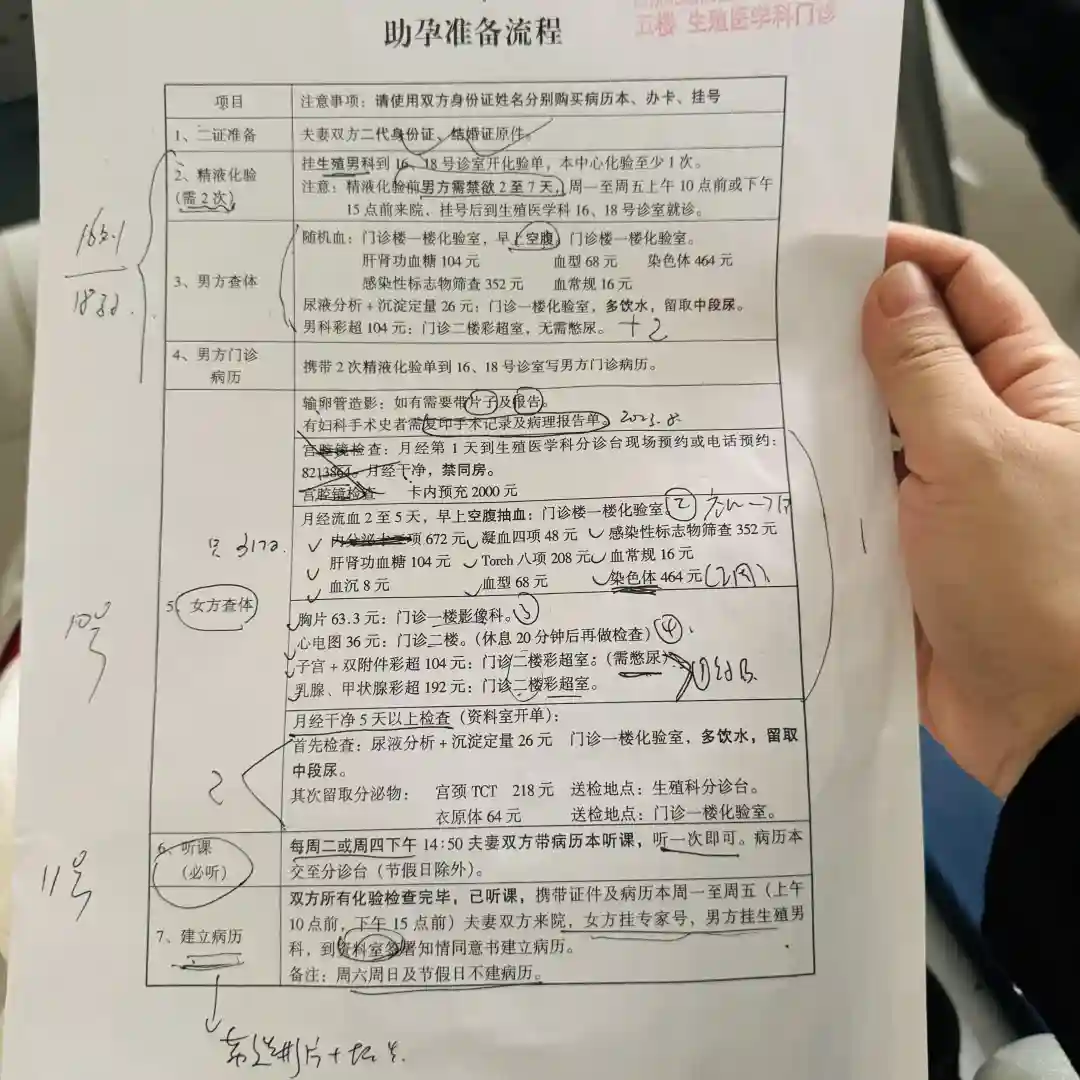 五楼 生殖医学科门诊
助孕准备流程
项目 注意事项：请使用双方身份证姓名分别购买病历本、办卡、挂号
1、二证准备 夫妻双方二代身份证、结婚证原件。
2、精液化验
(需2次)
挂生殖男科到16、18号诊室开化验单，本中心化验至少1次。
注意：精液化验前男方需禁欲2至7天，周一至周五上午10点前或下午
15点前来院，挂号后到生殖医学科16、18号诊室就诊。
3、男方查体
随机血：门诊楼一楼化验室，早上空腹，门诊楼一楼化验室。
肝肾功血糖104元 血型68元 染色体464元
感染性标志物筛查352元 血常规16元
尿液分析+沉淀定量26元：门诊一楼化验室，多饮水，留取中段尿。
男科彩超104元：门诊二楼彩超室，无需憋尿。 +2
4、男方门诊
病历
携带2次精液化验单到16、18号诊室写男方门诊病历。
5、女方查体
输卵管造影：如有需要带片子及报告。
有妇科手术史者需复印手术记录及病理报告单。 2023.8.
宫腔镜检查：月经第1天到生殖医学科分诊台现场预约或电话预约：
8213864。月经干净，禁同房。
宫腔镜检查 卡内预充2000元
月经流血2至5天，早上空腹抽血：门诊楼一楼化验室。②
672元 凝血四项48元 感染性标志物筛查352元
肝肾功血糖104元 Torch八项208元 血常规16元
血沉8元 血型68元 染色体464元（2周）
胸片63.3元：门诊一楼影像科。③
心电图36元：门诊二楼。（休息20分钟后再做检查）④
子宫+双附件彩超104元：门诊二楼彩超室。（需憋尿）
乳腺、甲状腺彩超192元：门诊二楼彩超室。 ①
月经干净5天以上检查（资料室开单）：
首先检查：尿液分析+沉淀定量26元 门诊一楼化验室，多饮水，留取
中段尿。
其次留取分泌物： 宫颈TCT 218元 送检地点：生殖科分诊台。
衣原体64元 送检地点：门诊一楼化验室。
1
2
10号
6、听课
（必听）
每周二或周四下午14:50夫妻双方带病历本听课，听一次即可。病历本
交至分诊台（节假日除外）。
11号
7、建立病历
双方所有化验检查完毕，已听课，携带证件及病历本周一至周五（上午
10点前，下午15点前）夫妻双方来院，女方挂专家号，男方挂生殖男
科，到资料室签署知情同意书建立病历。
备注：周六周日及节假日不建病历。